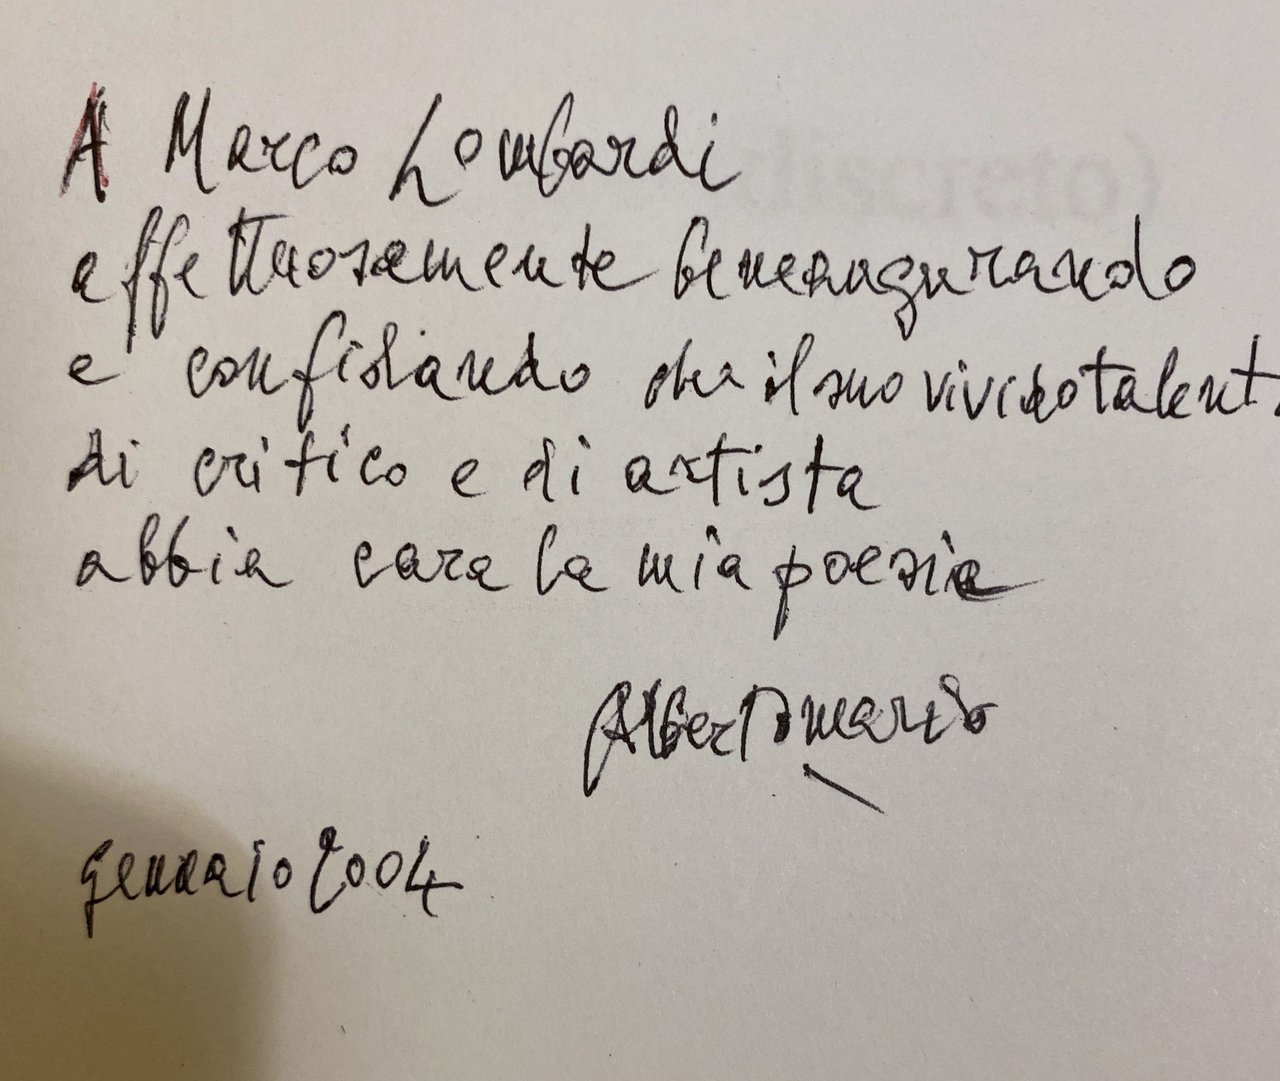 A Marco Lombardi
affettuosamente beneaugurando
e confidando che il suo vivido talent
di critico e di artista
abbia cara la mia poesia
Alberto
gennaio 2004